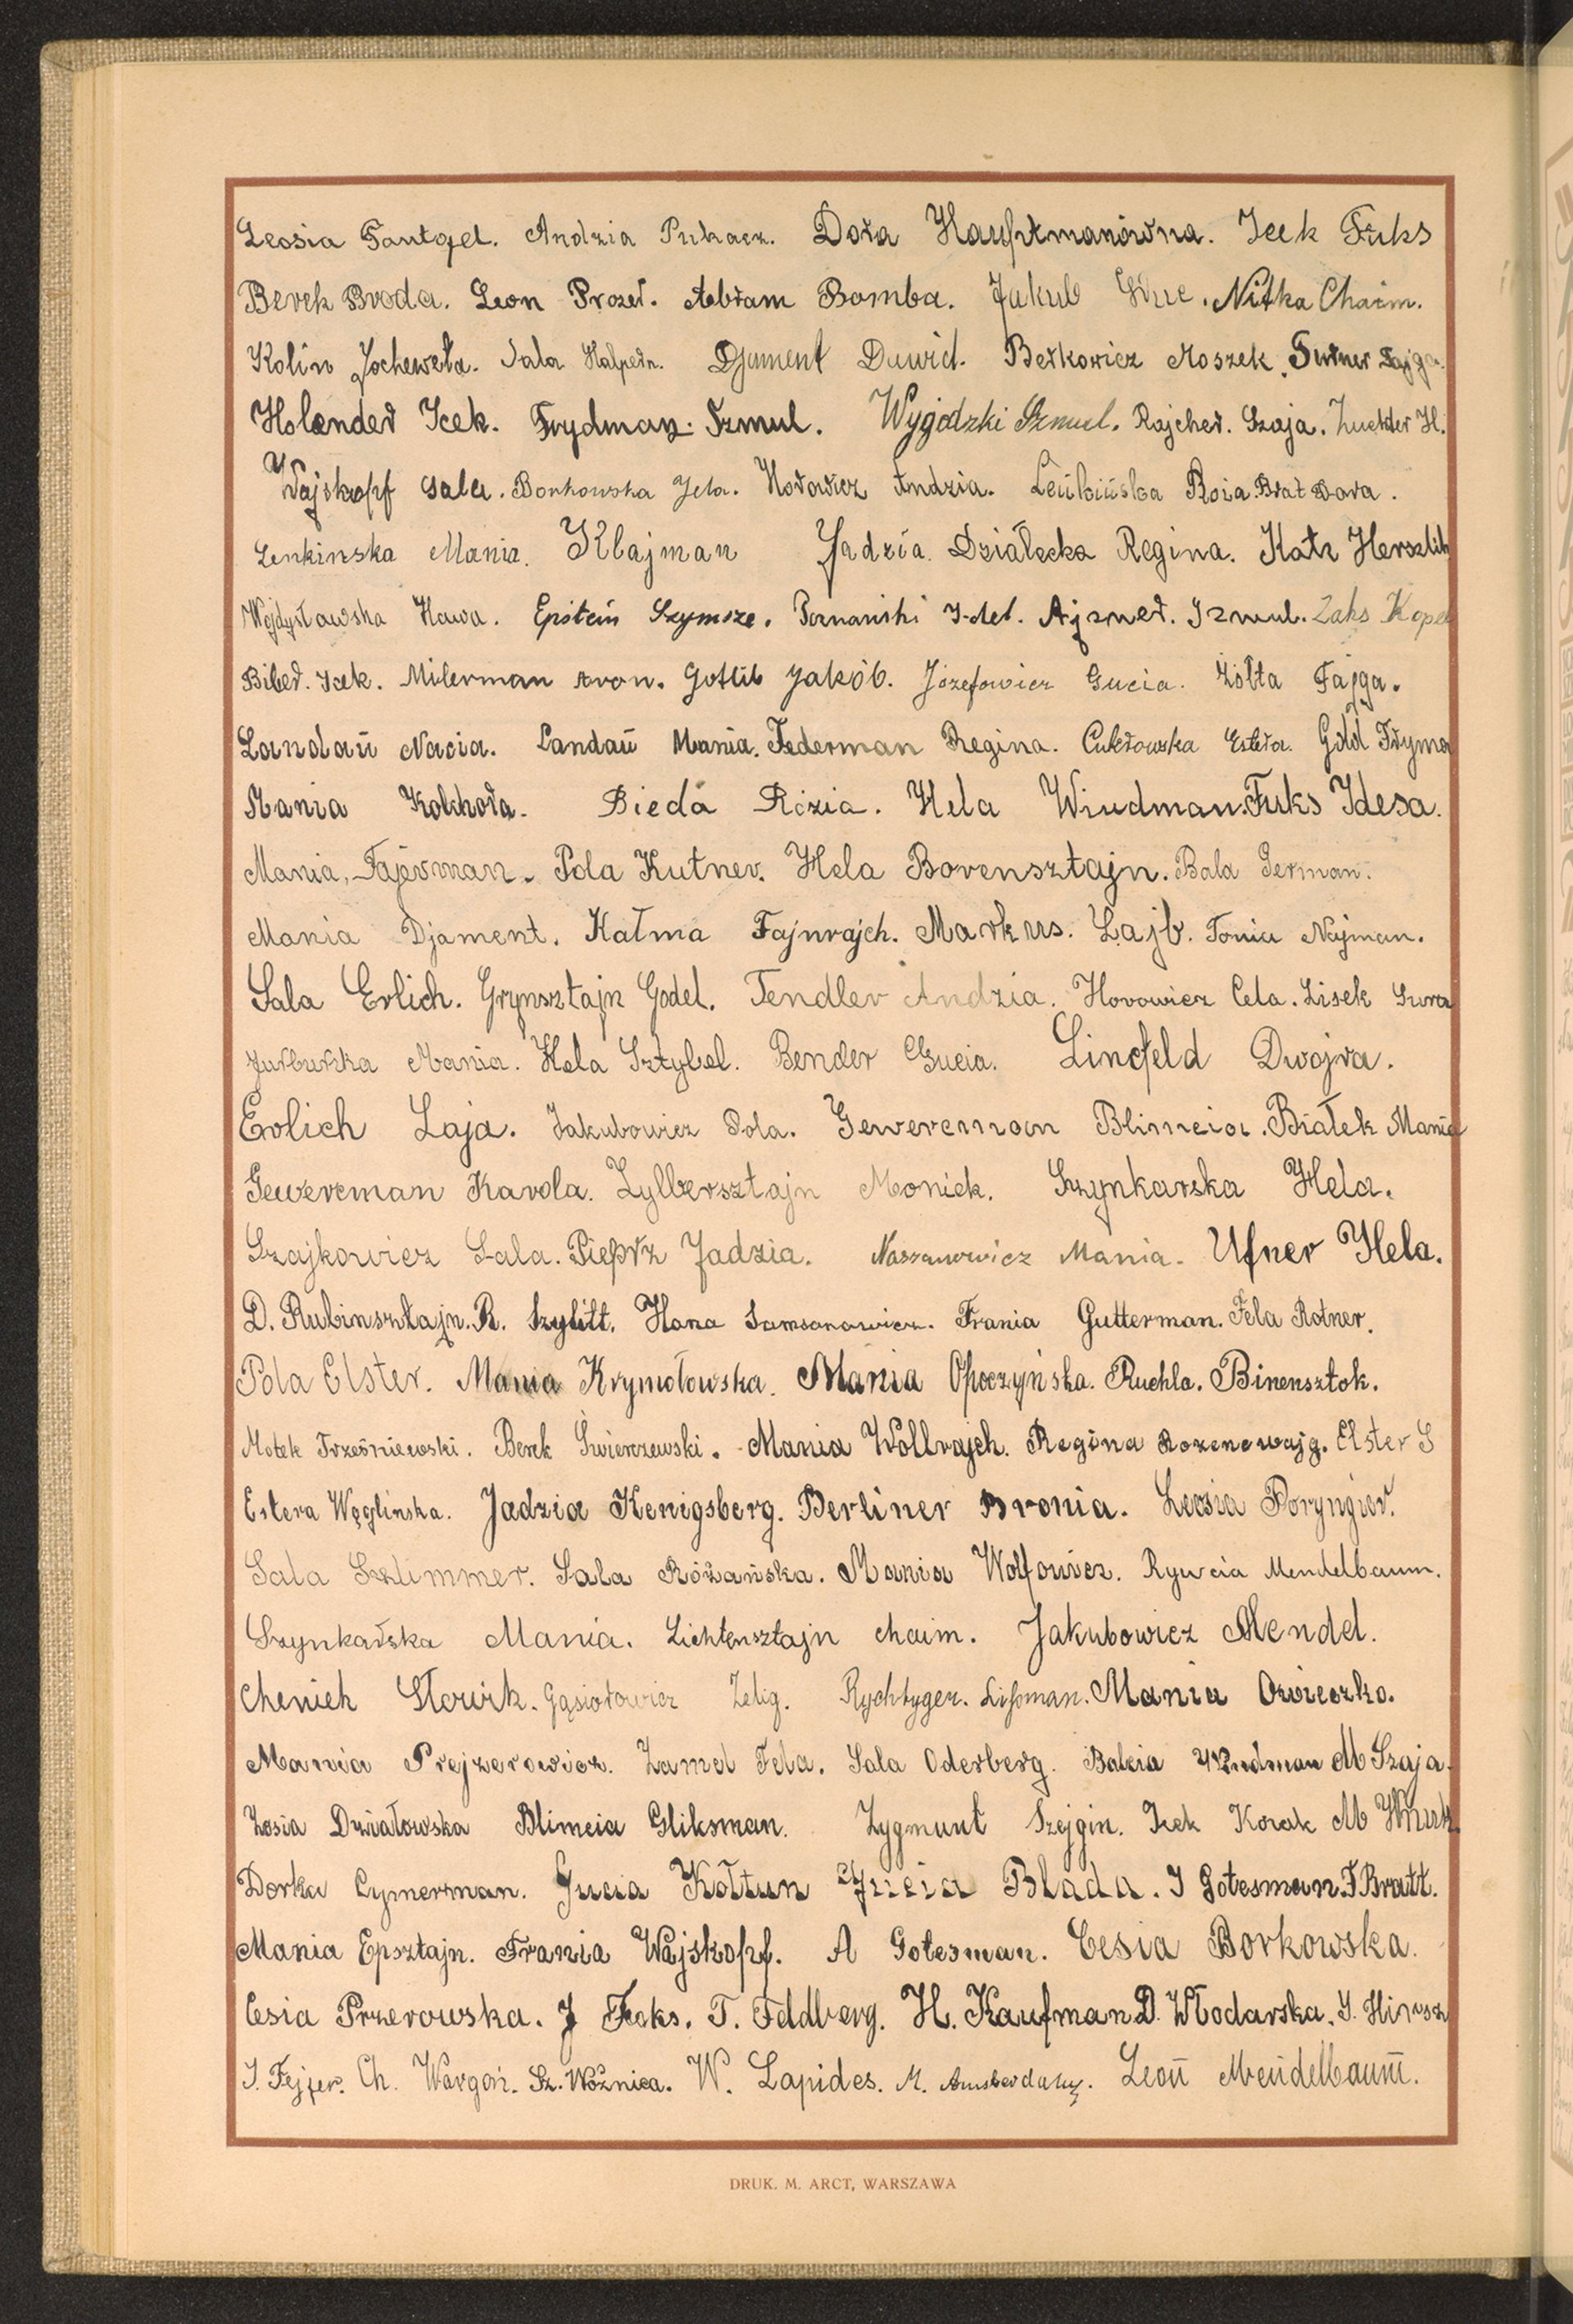 Leosia Fantazel. Andzia Pukacz. Dora Hauptmanówna. Icek Fuks
Berek Broda. Leon Prozer. Abram Bomba. Jakub. Nitka Chaim.
Kolin Jocheweta. Sala Halpern. Djament Dawid. Berkowicz Moszek. Fajga.
Holender Icek. Frydman. Szmul. Wygodzki Szmul. Rajcher. Szaja. H.
Wajskopf Sala. Borkowska Jela. Horowicz Andzia. Róia. Brat Dora.
Lenkinska Mania. Klajman Jadzia. Działecka Regina. Katz Herszlik
Wojdysławska Hawa. Epstein Szymsze. Poznański I-del. Ajzner. Szmul. Zaks Kopel
Biber. Icek. Milerman Aron. Gotlib Jakób. Józefowicz Gucia. Żółta Fajga.
Landau Nacia. Landau Mania. Federman Regina. Estera. Gold Fryma
Mania Kolchora. Bieda Rózia. Hela Windman. Fuks Idesa.
Mania, Fajerman. Pola Kutner. Hela Borensztajn. Bala German.
Mania Djament. Kałma Fajnrajch. Markus. Lajb. Tonia Najman.
Sala Erlich. Grynsztajn Godel. Tendler Andzia. Horowicz Cela. Lisek Sura
Jurburska Mania. Hela Sztybel. Bender Gucia. Lincfeld Dwojra.
Erlich Laja. Jakubowicz Pola. Gewercman Blimcia. Białek Mania
Gewercman Karola. Zylbersztajn Moniek. Szynkarska Hela.
Szajkowicz Sala. Pieprz Jadzia. Naszanowicz Mania. Ufner Hela.
D. Rubinsztajn. R. Szylitt. Hana Samsonowicz. Frania Gutterman. Fela Rotner.
Pola Elster. Mania Krymołowska. Mania Opoczyńska. Ruchla. Binensztok.
Motek Trześniewski. Berek Świerczewski. Mania Wollrajch. Regina Rozencwajg. Elster S
Estera Węglińska. Jadzia Kenigsberg. Berliner Bronia. Leosia Poryngier.
Sala Szlimmer. Sala Różańska. Mania Wolfowicz. Rywcia Mendelbaum.
Szynkarska Mania. Lichtensztajn Chaim. Jakubowicz Mendel.
Cheniek Słowik. Gąsiorowicz Zelig. Rychtyger. Lipman. Mania Owieczko.
Mania Prejzerowicz. Zamel Fela. Sala Oderberg. Balcia Windman M Szaja.
Zosia Działowska Blimcia Gliksman. Zygmunt Szejgin. Icek Kozak M Wnuk
Dorka Cymerman. Gucia Kołtun Gucia Blada. I Gotesman. F Bratt.
Mania Epsztajn. Frania Wajskopf. A Gotesman. Cesia Borkowska.
Cesia Przerowska. J Foks. T. Feldberg. H. Kaufman D. Włodarska. I. Hirusz
I. Fejfer. Ch. Wargoń. Sz. Woźnica. W. Lapides. M. Leon Mendelbaum.
DRUK. M. ARCT, WARSZAWA